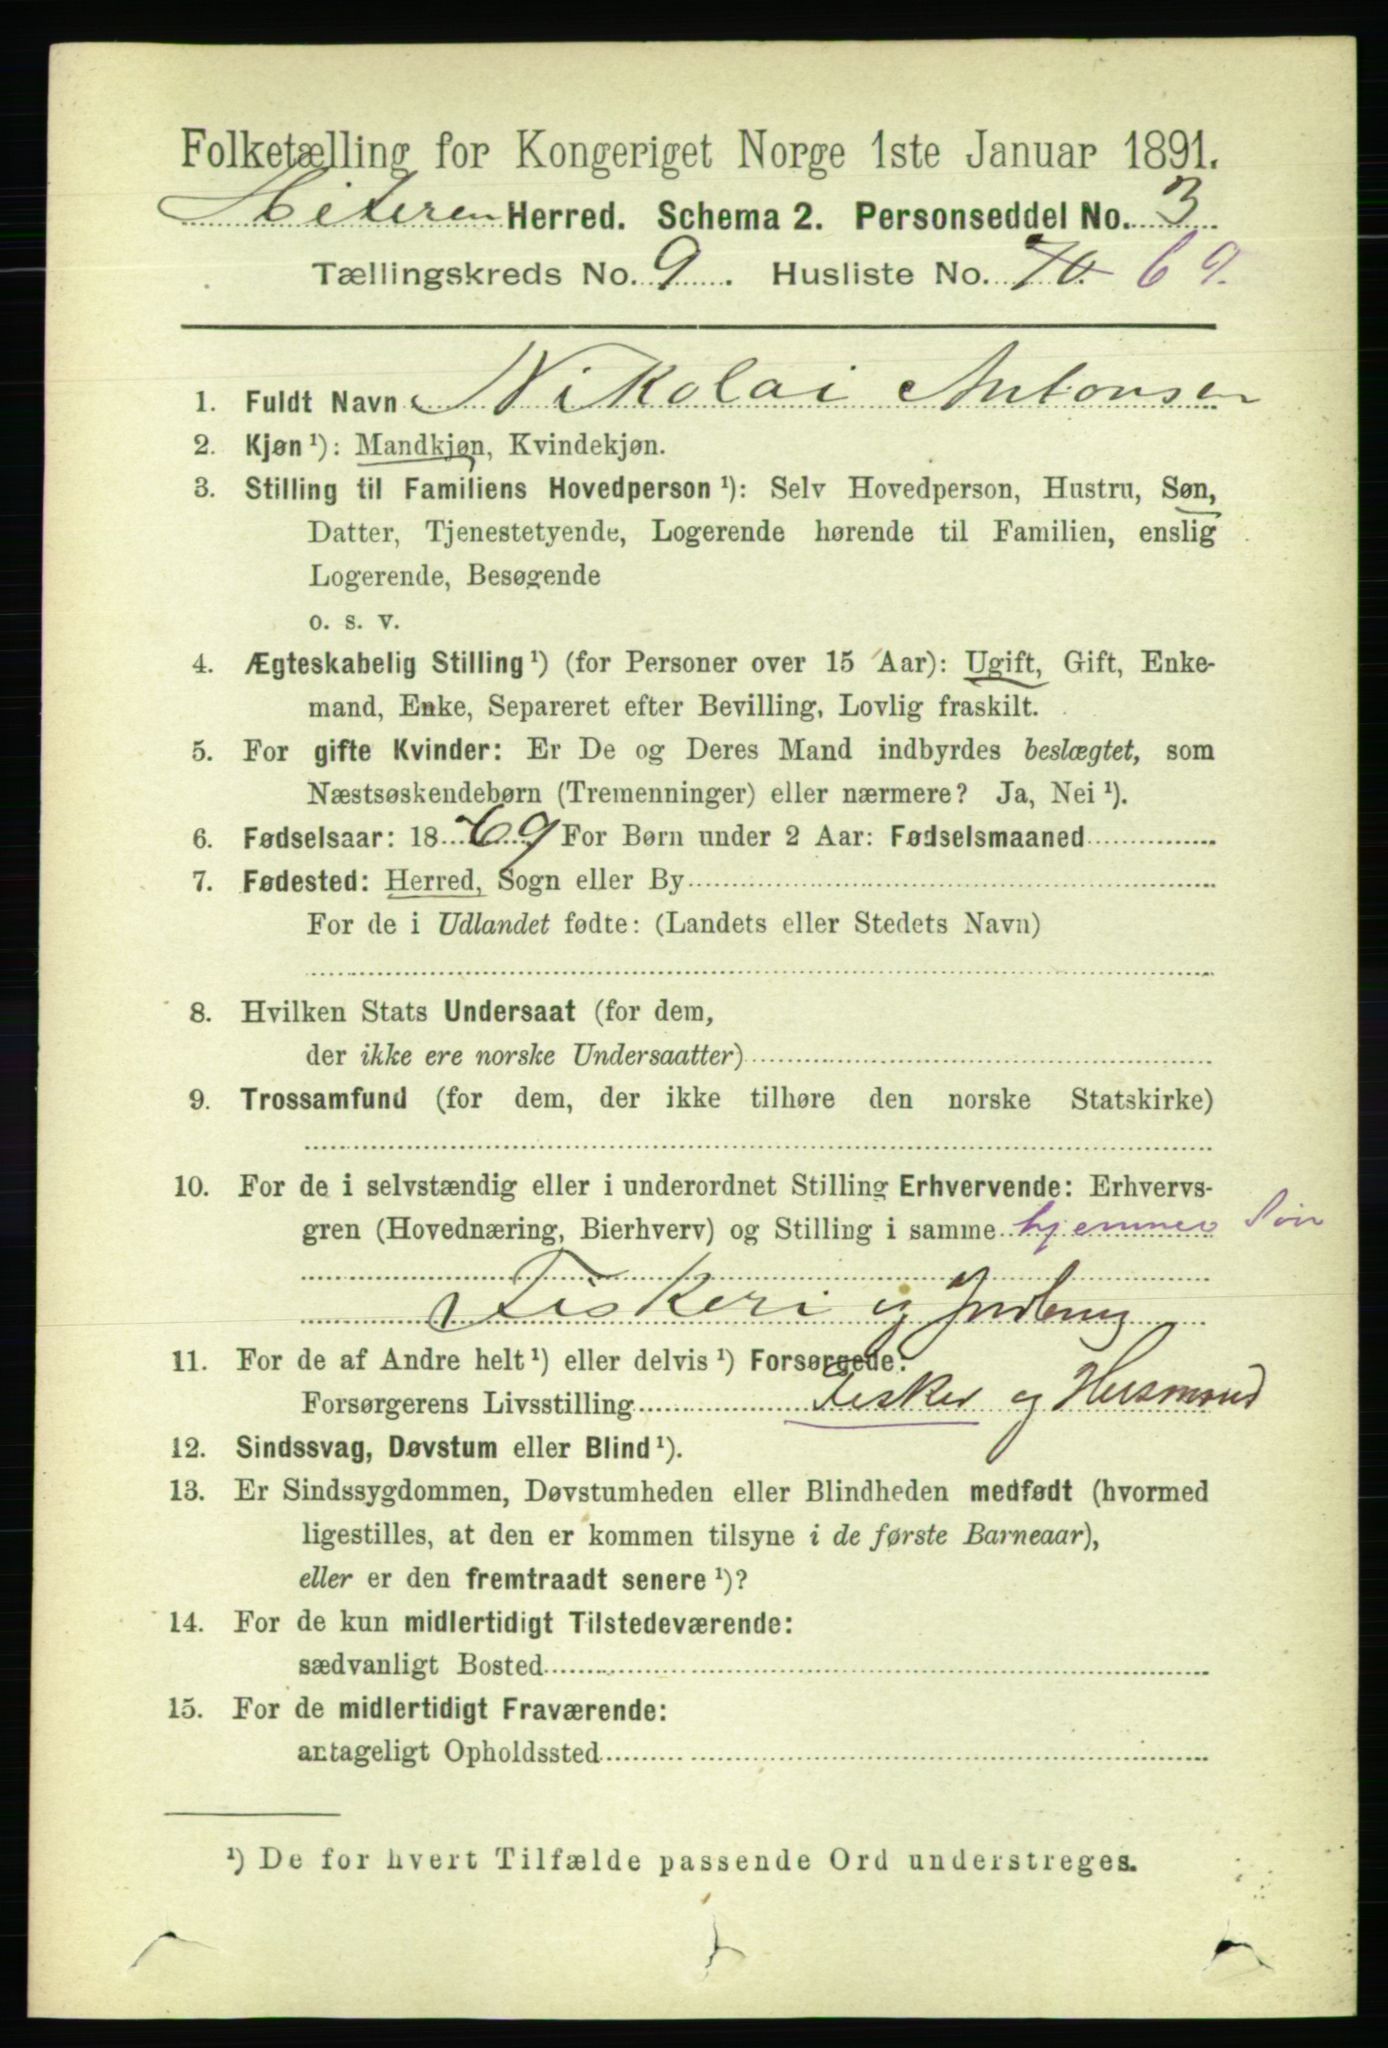 Folketælling for Kongeriget Norge 1ste Januar 1891.
Hiteren Herred. Schema 2. Personseddel No. 3
Tællingskreds No. 9. Husliste No. 70 69.
1. Fuldt Navn Nikolai Antonsen
2. Kjøn ¹): Mandkjøn, Kvindekjøn.
3. Stilling til Familiens Hovedperson ¹): Selv Hovedperson, Hustru, Søn,
Datter, Tjenestetyende, Logerende hørende til Familien, enslig
Logerende, Besøgende
o. s. v.
4. Ægteskabelig Stilling ¹) (for Personer over 15 Aar): Ugift, Gift, Enke-
mand, Enke, Separeret efter Bevilling, Lovlig fraskilt.
5. For gifte Kvinder: Er De og Deres Mand indbyrdes beslægtet, som
Næstsøskendebørn (Tremenninger) eller nærmere? Ja, Nei ¹).
6. Fødselsaar: 1869 For Børn under 2 Aar: Fødselsmaaned
7. Fødested: Herred, Sogn eller By
For de i Udlandet fødte: (Landets eller Stedets Navn)
8. Hvilken Stats Undersaat (for dem,
der ikke ere norske Undersaatter)
9. Trossamfund (for dem, der ikke tilhøre den norske Statskirke)
10. For de i selvstændig eller i underordnet Stilling Erhvervende: Erhvervs-
gren (Hovednæring, Bierhverv) og Stilling i samme hjemmev Søn
Fiskeri og Jordbrug
11. For de af Andre helt ¹) eller delvis ¹) Forsørgede:
Forsørgerens Livsstilling Fisker og Husmand
12. Sindssvag, Døvstum eller Blind ¹).
13. Er Sindssygdommen, Døvstumheden eller Blindheden medfødt (hvormed
ligestilles, at den er kommen tilsyne i de første Barneaar),
eller er den fremtraadt senere ¹)?
14. For de kun midlertidigt Tilstedeværende:
sædvanligt Bosted
15. For de midlertidigt Fraværende:
antageligt Opholdssted
¹) De for hvert Tilfælde passende Ord understreges.